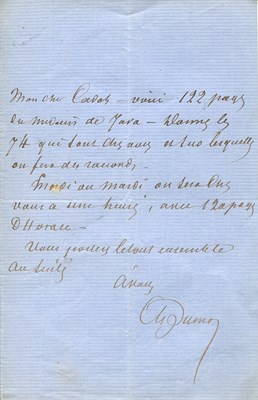 Mon cher Cadot – voici 122 pages
du médecin de Java – Donnez les
74 qui sont chez vous et sur lesquelles
on fera des raccords,
ou mardi on sera chez
vous à une heure, avec 120 pages
D'Horace –
Vous porterez le tout ensemble
à vous
A Dumas